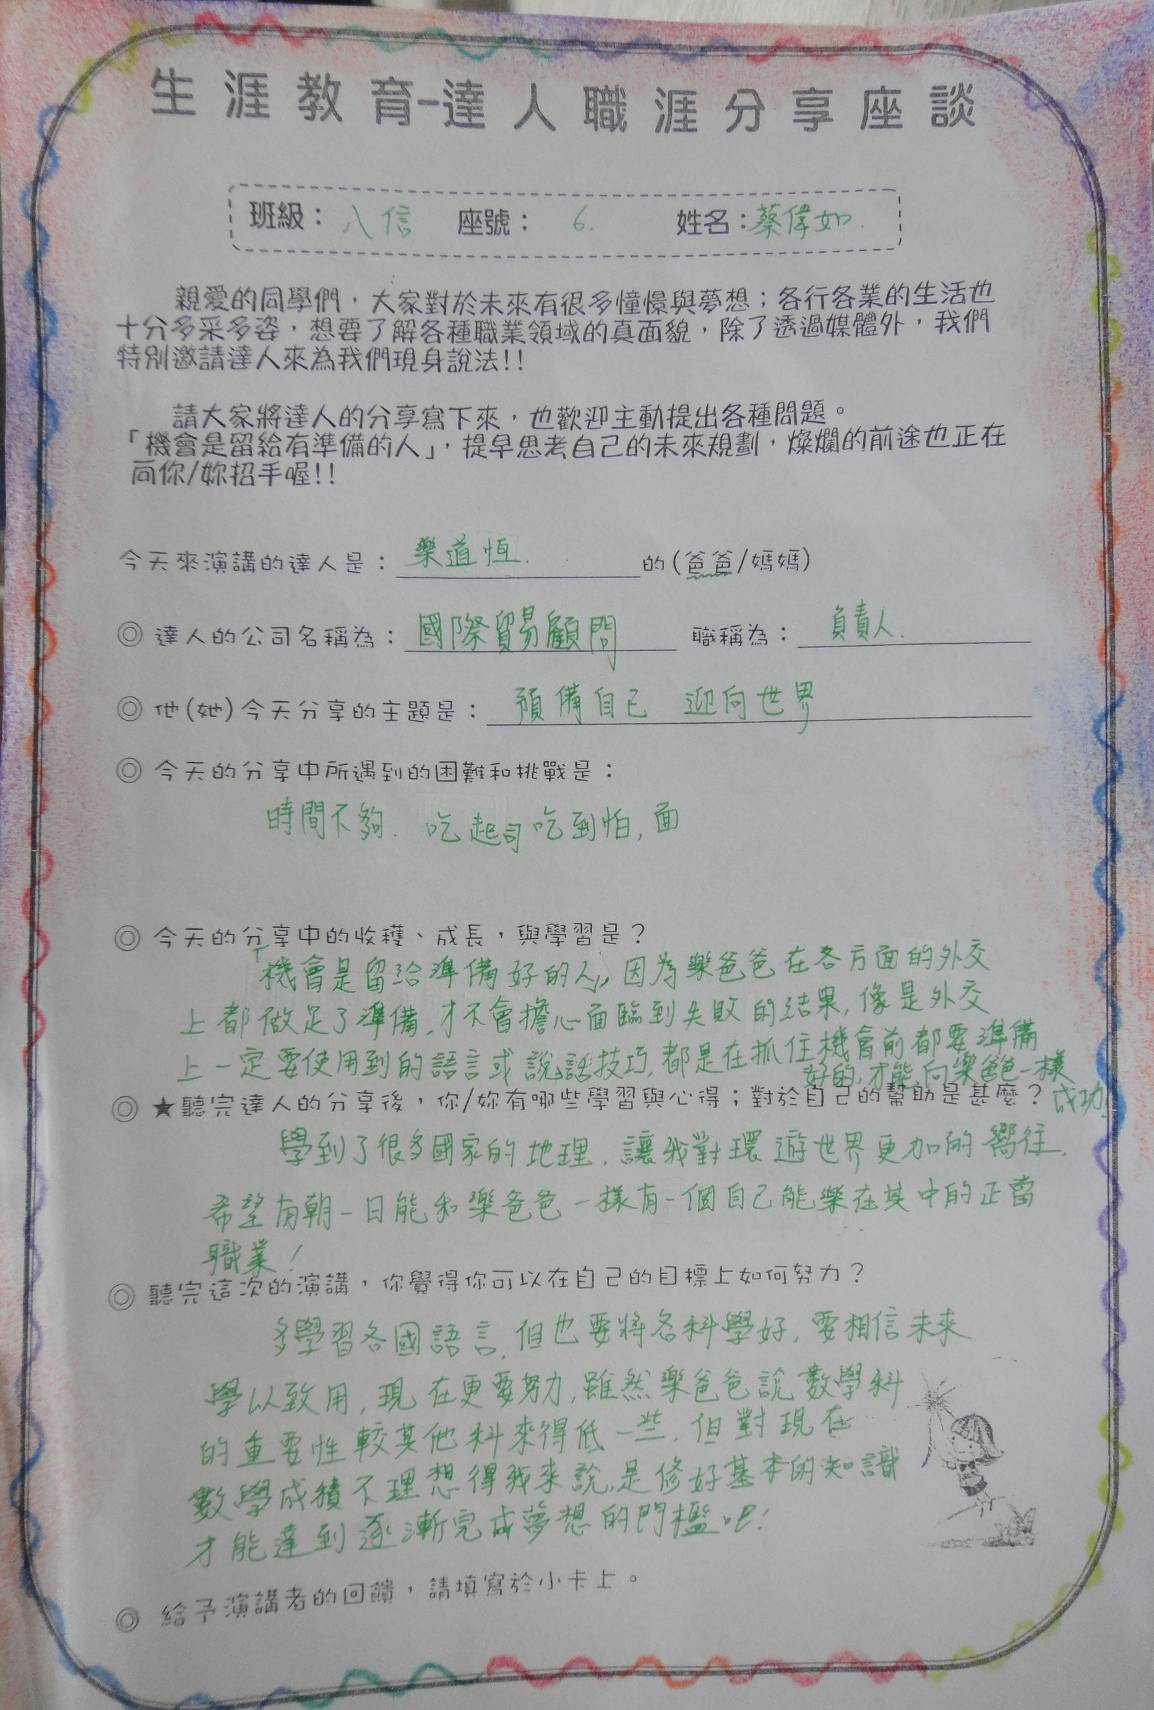 生涯教育-達人職涯分享座談
班級：八信 座號：6. 姓名：蔡偉如.
親愛的同學們，大家對於未來有很多憧憬與夢想；各行各業的生活也
十分多采多姿，想要了解各種職業領域的真面貌，除了透過媒體外，我們
特別邀請達人來為我們現身說法!!
請大家將達人的分享寫下來，也歡迎主動提出各種問題。
「機會是留給有準備的人」，提早思考自己的未來規劃，燦爛的前途也正在
向你/妳招手喔!!
今天來演講的達人是：樂道恆. 的(爸爸/媽媽)
◎ 達人的公司名稱為：國際貿易顧問 職稱為：負責人.
◎ 他(她)今天分享的主題是：預備自己 迎向世界
◎ 今天的分享中所遇到的困難和挑戰是：
時間不夠. 吃起司吃到怕, 面
◎ 今天的分享中的收穫、成長，與學習是？
「機會是留給準備好的人」, 因為樂爸爸在各方面的外交
上都做足了準備, 才不會擔心面臨到失敗的結果, 像是外交
上一定要使用到的語言或說話技巧, 都是在抓住機會前都要準備
好的, 才能向樂爸爸一樣
成功!
◎ ★聽完達人的分享後，你/妳有哪些學習與心得；對於自己的幫助是甚麼？
學到了很多國家的地理, 讓我對環遊世界更加的嚮往.
希望有朝一日能和樂爸爸一樣有一個自己能樂在其中的正當
職業!
◎ 聽完這次的演講，你覺得你可以在自己的目標上如何努力？
多學習各國語言, 但也要將各科學好, 要相信未來
學以致用, 現在更要努力, 雖然樂爸爸說數學科
的重要性較其他科來得低一些, 但對現在
數學成績不理想得我來說, 是修好基本的知識
才能達到逐漸完成夢想的門檻吧!
◎ 給予演講者的回饋，請填寫於小卡上。